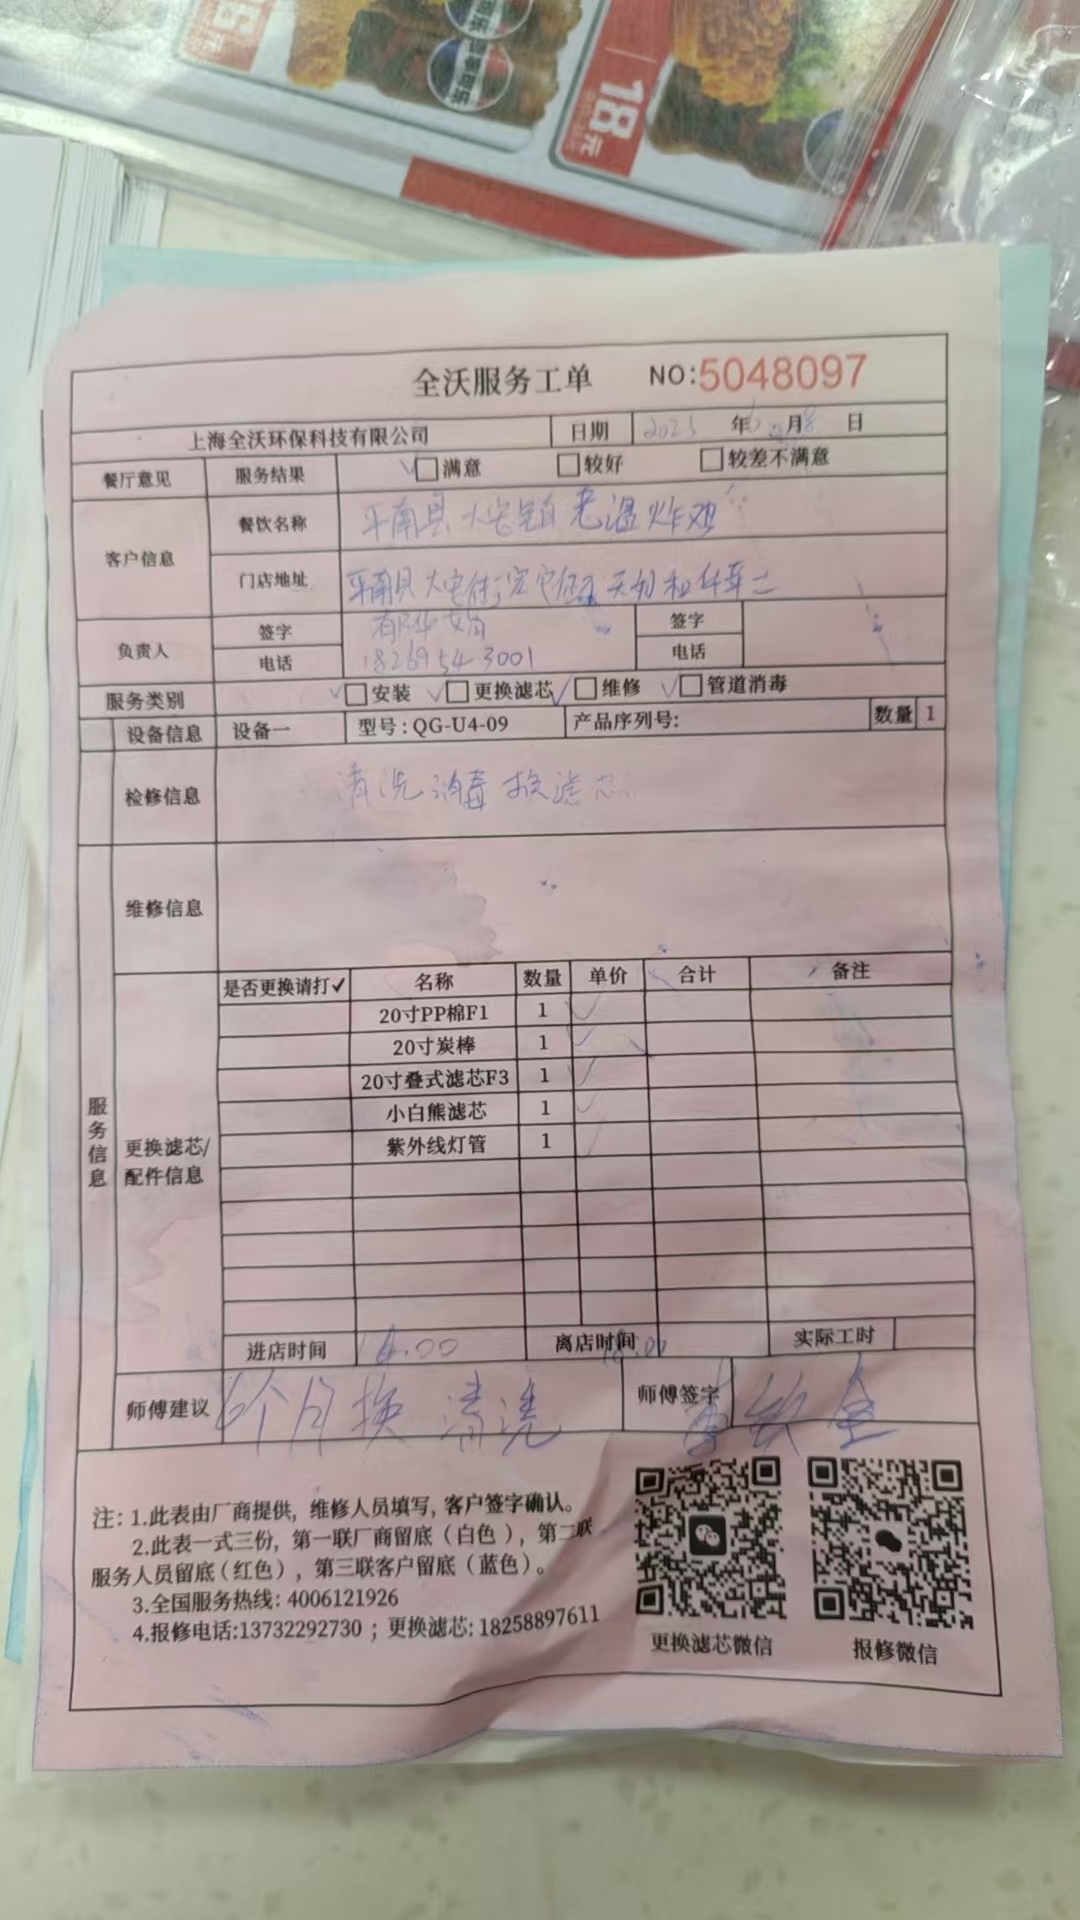 18元
全沃服务工单 NO:5048097
上海全沃环保科技有限公司 日期 2025 年6月8日
餐厅意见 服务结果 ✓□满意 □较好 □较差不满意
客户信息 餐饮名称 平南县大安镇老温炸鸡
门店地址 平南县大安
负责人 签字 签字
电话 18269543001 电话
服务类别 ✓□安装 ✓□更换滤芯 ✓□维修 ✓□管道消毒
设备信息 设备一 型号:QG-U4-09 产品序列号: 数量 1
检修信息 清洗消毒换滤芯
维修信息
服务信息
更换滤芯/配件信息
是否更换请打✓ 名称 数量 单价 合计 备注
20寸PP棉F1 1 ✓
20寸炭棒 1 ✓
20寸叠式滤芯F3 1 ✓
小白熊滤芯 1 ✓
紫外线灯管 1 ✓
进店时间 离店时间 实际工时
师傅建议 6个月换 清洗 师傅签字
注: 1.此表由厂商提供, 维修人员填写, 客户签字确认。
2.此表一式三份, 第一联厂商留底(白色), 第二联
服务人员留底(红色), 第三联客户留底(蓝色)。
3.全国服务热线: 4006121926
4.报修电话:13732292730 ; 更换滤芯: 18258897611
更换滤芯微信 报修微信